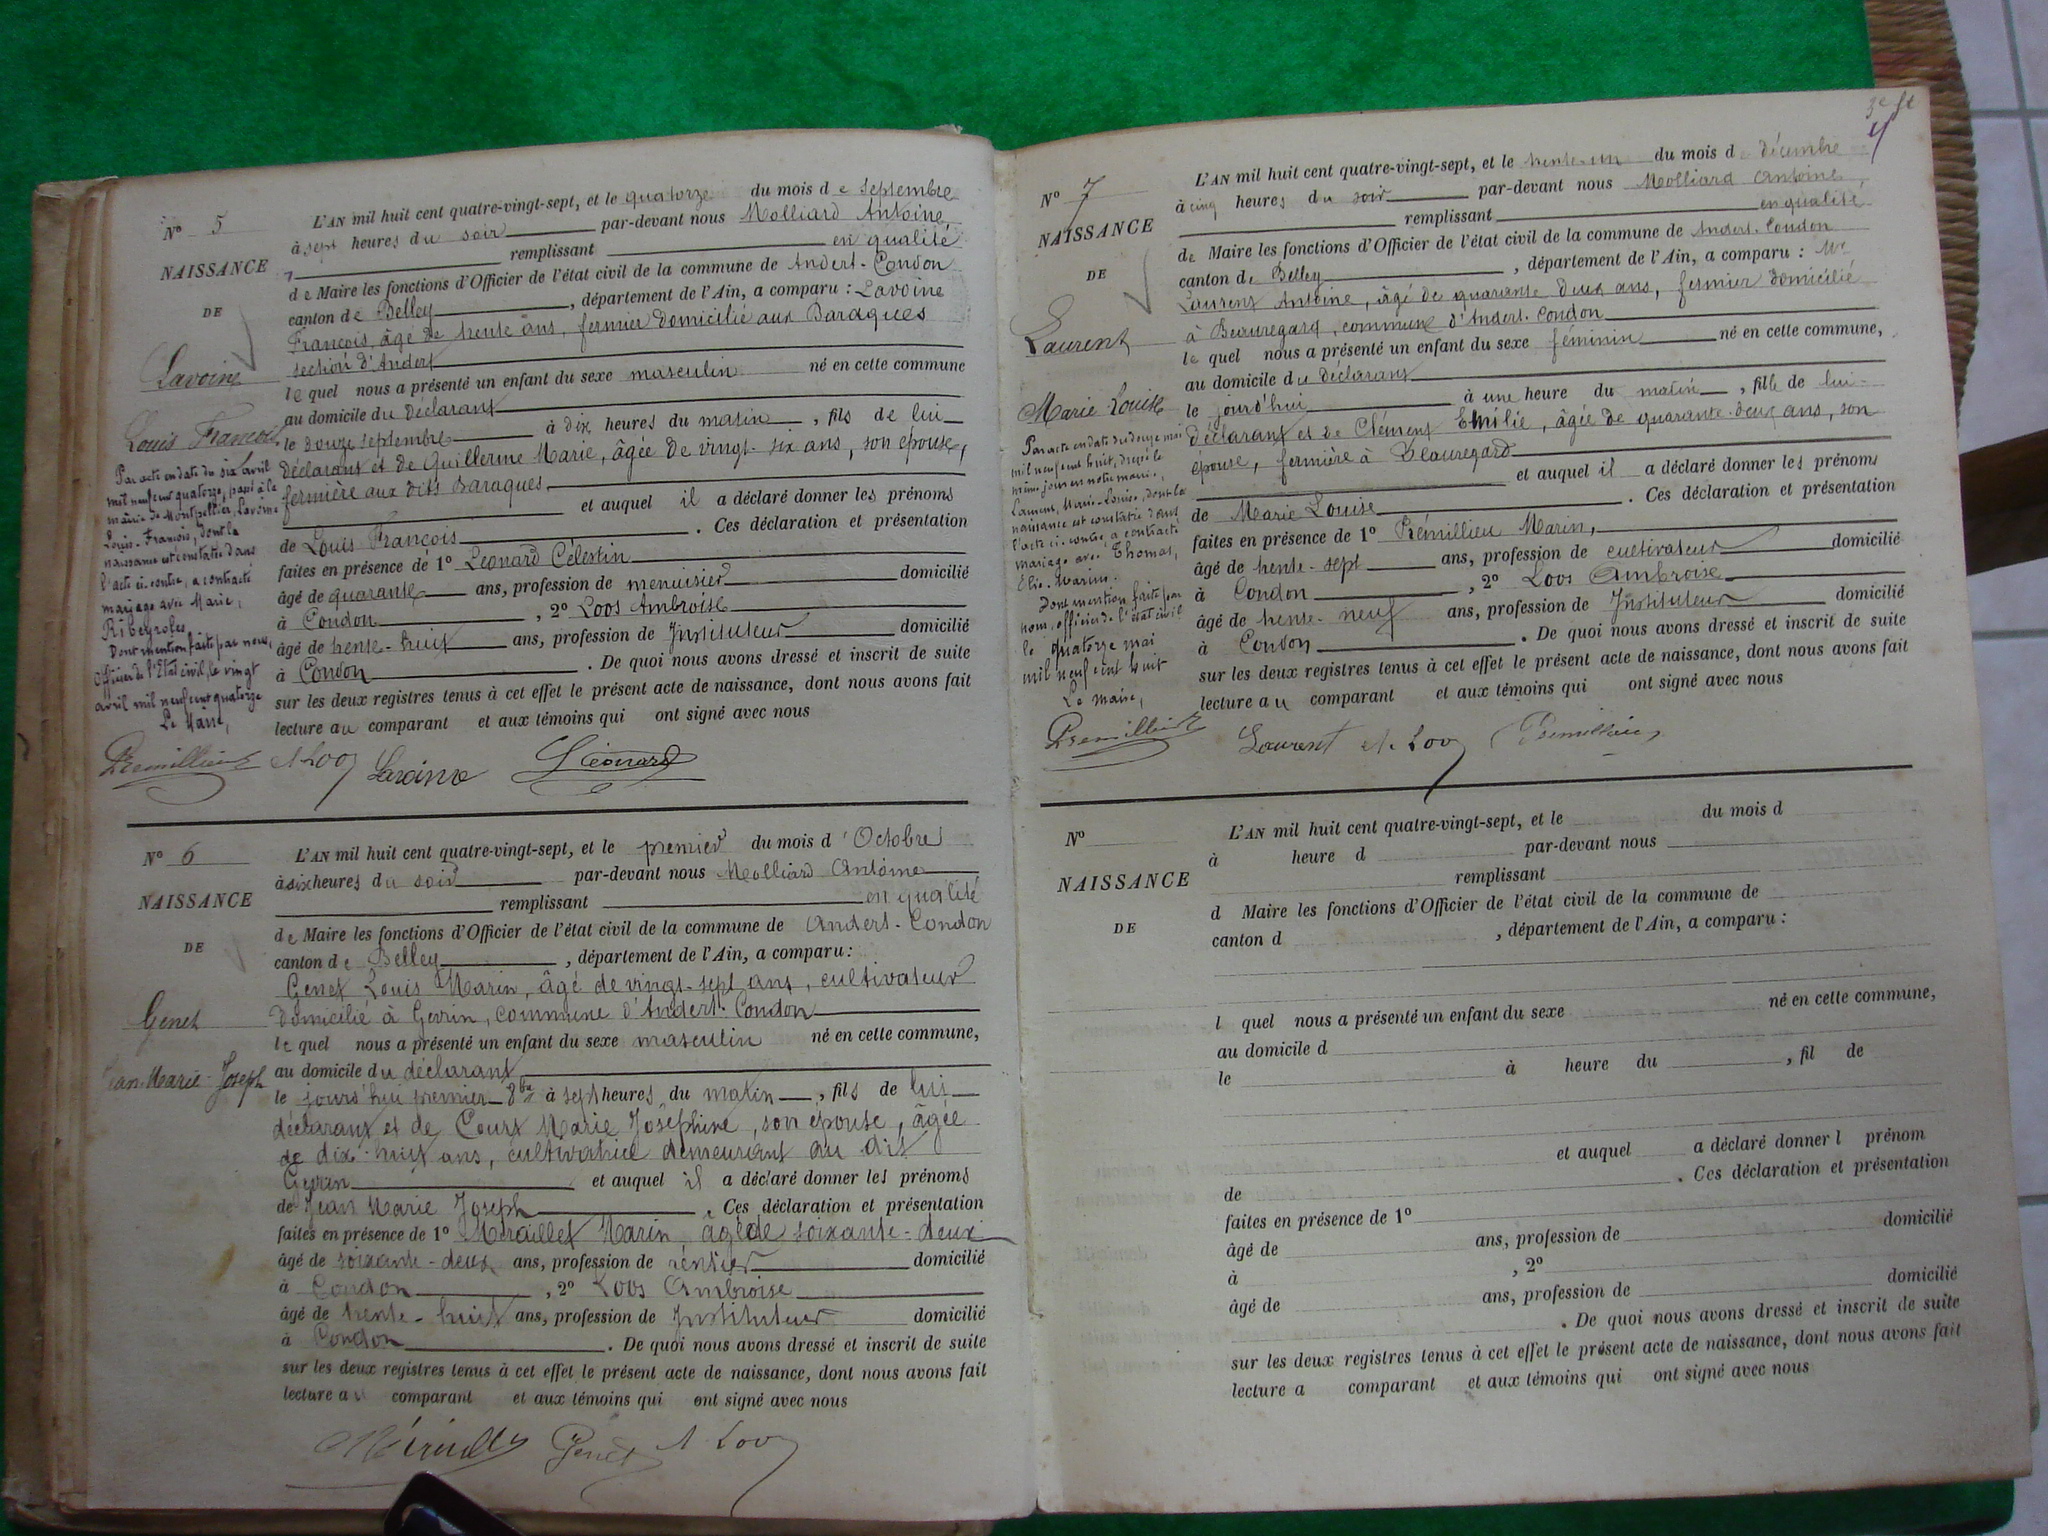 N° 5
NAISSANCE
DE
Lavoine
Louis François
Par acte en date du six avril
mil neuf cent quatorze, passé à la
mairie de Montpellier, Lavoine
Louis-François, dont la
naissance est constatée dans
l'acte ci-contre, a contracté
mariage avec Marie,
Ribeyrolles
Dont mention faite par nous,
Officier de l'Etat civil, le vingt
avril mil neuf cent quatorze
Le Maire,
L'AN mil huit cent quatre-vingt-sept, et le quatorze du mois de septembre
à sept heures du soir par-devant nous Molliard Antoine
remplissant en qualité
de Maire les fonctions d'Officier de l'état civil de la commune de Andert-Condon
canton de Belley, département de l'Ain, a comparu : Lavoine
François, âgé de trente ans, fermier domicilié aux Baraques
section d'Andert
lequel nous a présenté un enfant du sexe masculin né en cette commune
au domicile du déclarant
le douze septembre à dix heures du matin, fils de lui
déclarant et de Guillerme Marie, âgée de vingt-six ans, son épouse,
fermière aux dits Baraques
et auquel il a déclaré donner les prénoms
de Louis François. Ces déclaration et présentation
faites en présence de 1° Léonard Célestin
âgé de quarante ans, profession de menuisier domicilié
à Condon, 2° Loos Ambroise
âgé de trente-huit ans, profession de Instituteur domicilié
à Condon. De quoi nous avons dressé et inscrit de suite
sur les deux registres tenus à cet effet le présent acte de naissance, dont nous avons fait
lecture au comparant et aux témoins qui ont signé avec nous
Prémillieu A Loos Lavoine Léonard
N° 6
NAISSANCE
DE
Genet
Jean-Marie-Joseph
L'AN mil huit cent quatre-vingt-sept, et le premier du mois d'Octobre
à six heures du soir par-devant nous Molliard Antoine
remplissant en qualité
de Maire les fonctions d'Officier de l'état civil de la commune de Andert-Condon
canton de Belley, département de l'Ain, a comparu :
Genet Louis Marin, âgé de vingt-sept ans, cultivateur
domicilié à Gevrin, commune d'Andert-Condon
lequel nous a présenté un enfant du sexe masculin né en cette commune,
au domicile du déclarant
le jourd'hui premier 8bre à sept heures du matin, fils de lui
déclarant et de Court Marie Joséphine, son épouse, âgée
de dix-huit ans, cultivatrice demeurant au dit
Gevrin et auquel il a déclaré donner les prénoms
de Jean Marie Joseph. Ces déclaration et présentation
faites en présence de 1° Méraillet Marin âgé de soixante-deux
âgé de soixante-deux ans, profession de rentier domicilié
à Condon, 2° Loos Ambroise
âgé de trente-huit ans, profession de Instituteur domicilié
à Condon. De quoi nous avons dressé et inscrit de suite
sur les deux registres tenus à cet effet le présent acte de naissance, dont nous avons fait
lecture au comparant et aux témoins qui ont signé avec nous
Genet A Loos
3e ft
4
N° 7
NAISSANCE
DE
Laurent
Marie Louise
Par acte en date du douze mai
mil neuf cent huit, dressé le
même jour en notre mairie,
Laurent, Marie-Louise, dont la
naissance est constatée dans
l'acte ci-contre, a contracté
mariage avec Thomas,
Elie-Marius.
Dont mention faite par
nous, officier de l'état civil
le quatorze mai
mil neuf cent huit
Le maire,
Prémillieu
L'AN mil huit cent quatre-vingt-sept, et le trente-un du mois de décembre
à cinq heures du soir par-devant nous Molliard Antoine,
remplissant en qualité
de Maire les fonctions d'Officier de l'état civil de la commune de Andert-Condon
canton de Belley, département de l'Ain, a comparu : Mr
Laurent Antoine, âgé de quarante deux ans, fermier domicilié
à Beauregard, commune d'Andert-Condon
lequel nous a présenté un enfant du sexe féminin né en cette commune,
au domicile du déclarant
le jourd'hui à une heure du matin, fille de lui-
déclarant et de Clément Emilie, âgée de quarante-deux ans, son
épouse, fermière à Beauregard
et auquel il a déclaré donner les prénoms
de Marie Louise. Ces déclaration et présentation
faites en présence de 1° Prémillieu Marin,
âgé de trente-sept ans, profession de cultivateur domicilié
à Condon, 2° Loos Ambroise
âgé de trente-neuf ans, profession de Instituteur domicilié
à Condon. De quoi nous avons dressé et inscrit de suite
sur les deux registres tenus à cet effet le présent acte de naissance, dont nous avons fait
lecture au comparant et aux témoins qui ont signé avec nous
Laurent A. Loos Prémillieu
N°
NAISSANCE
DE
L'AN mil huit cent quatre-vingt-sept, et le du mois d
à heure d par-devant nous
remplissant
d Maire les fonctions d'Officier de l'état civil de la commune de
canton d , département de l'Ain, a comparu :
l quel nous a présenté un enfant du sexe né en cette commune,
au domicile d
le à heure du , fil de
et auquel a déclaré donner l prénom
de . Ces déclaration et présentation
faites en présence de 1°
âgé de ans, profession de domicilié
à , 2°
âgé de ans, profession de domicilié
à . De quoi nous avons dressé et inscrit de suite
sur les deux registres tenus à cet effet le présent acte de naissance, dont nous avons fait
lecture a comparant et aux témoins qui ont signé avec nous